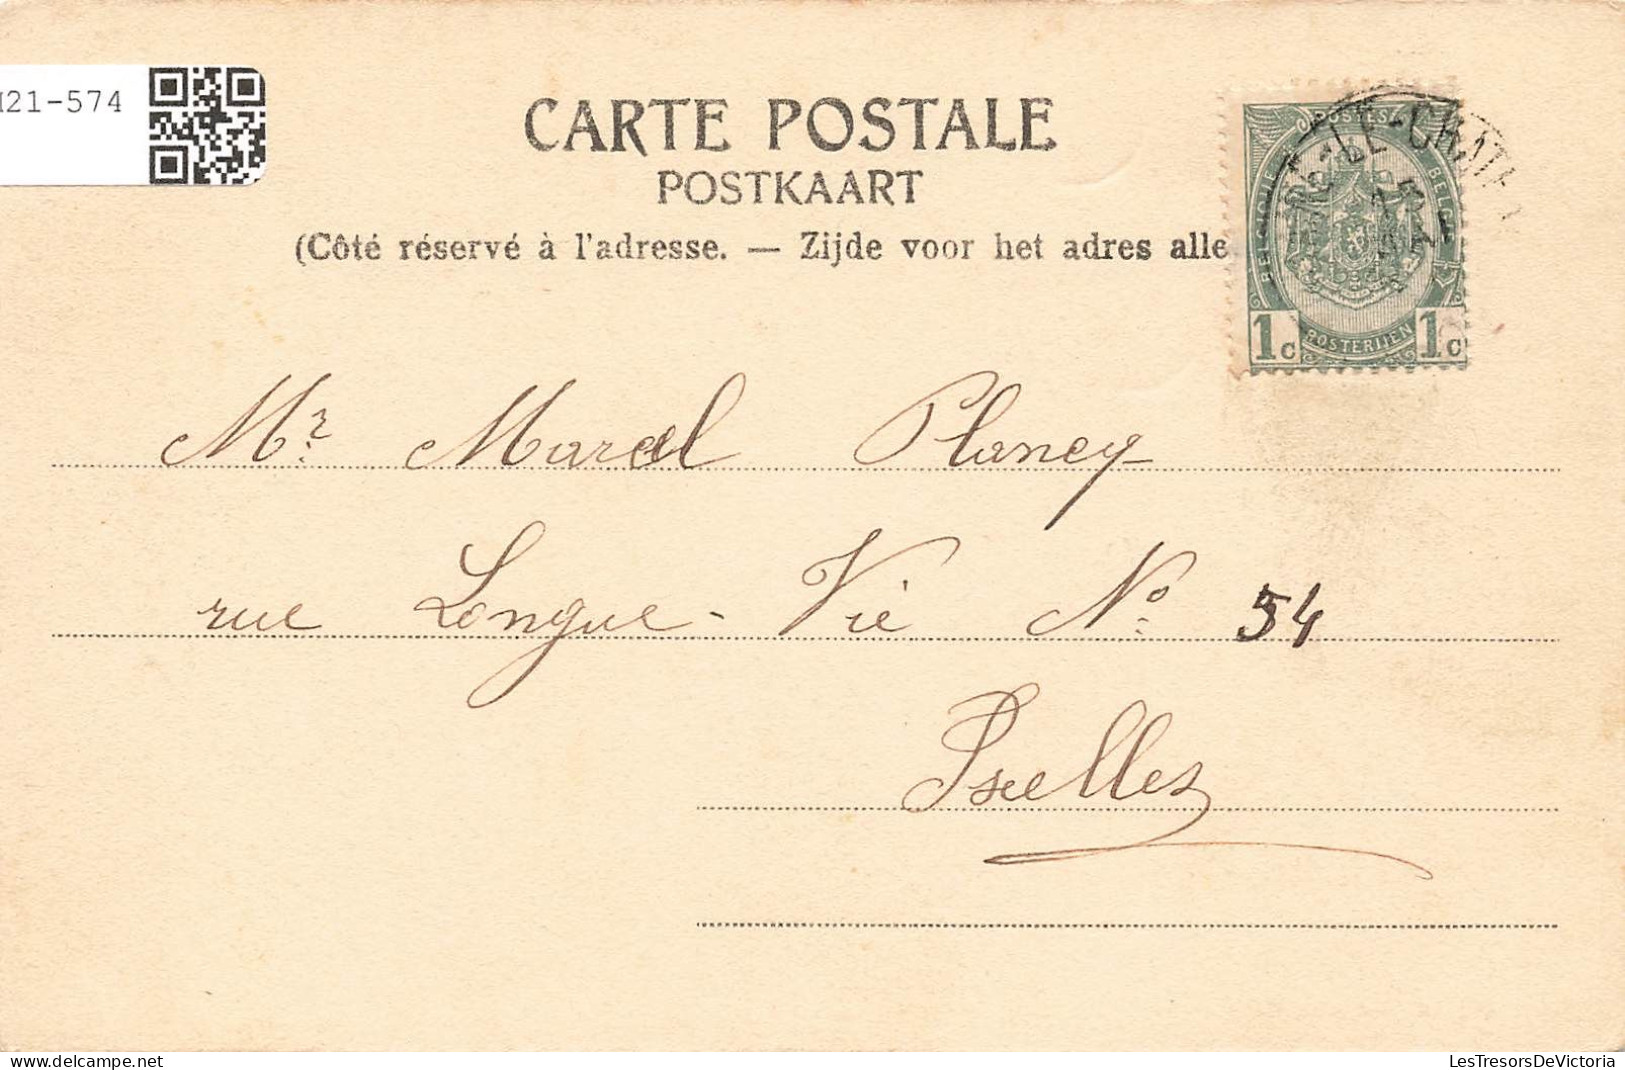 21-574
CARTE POSTALE
POSTKAART
(Côté réservé à l'adresse. — Zijde voor het adres alle
POSTES
BELGIQUE
BELGIË
POSTERIJEN
1c 1c
LE-CHAT
Mr Marcel Plancq
rue Longue-Vie No 54
Ixelles
delcampe.net
LesTresorsDeVictoria